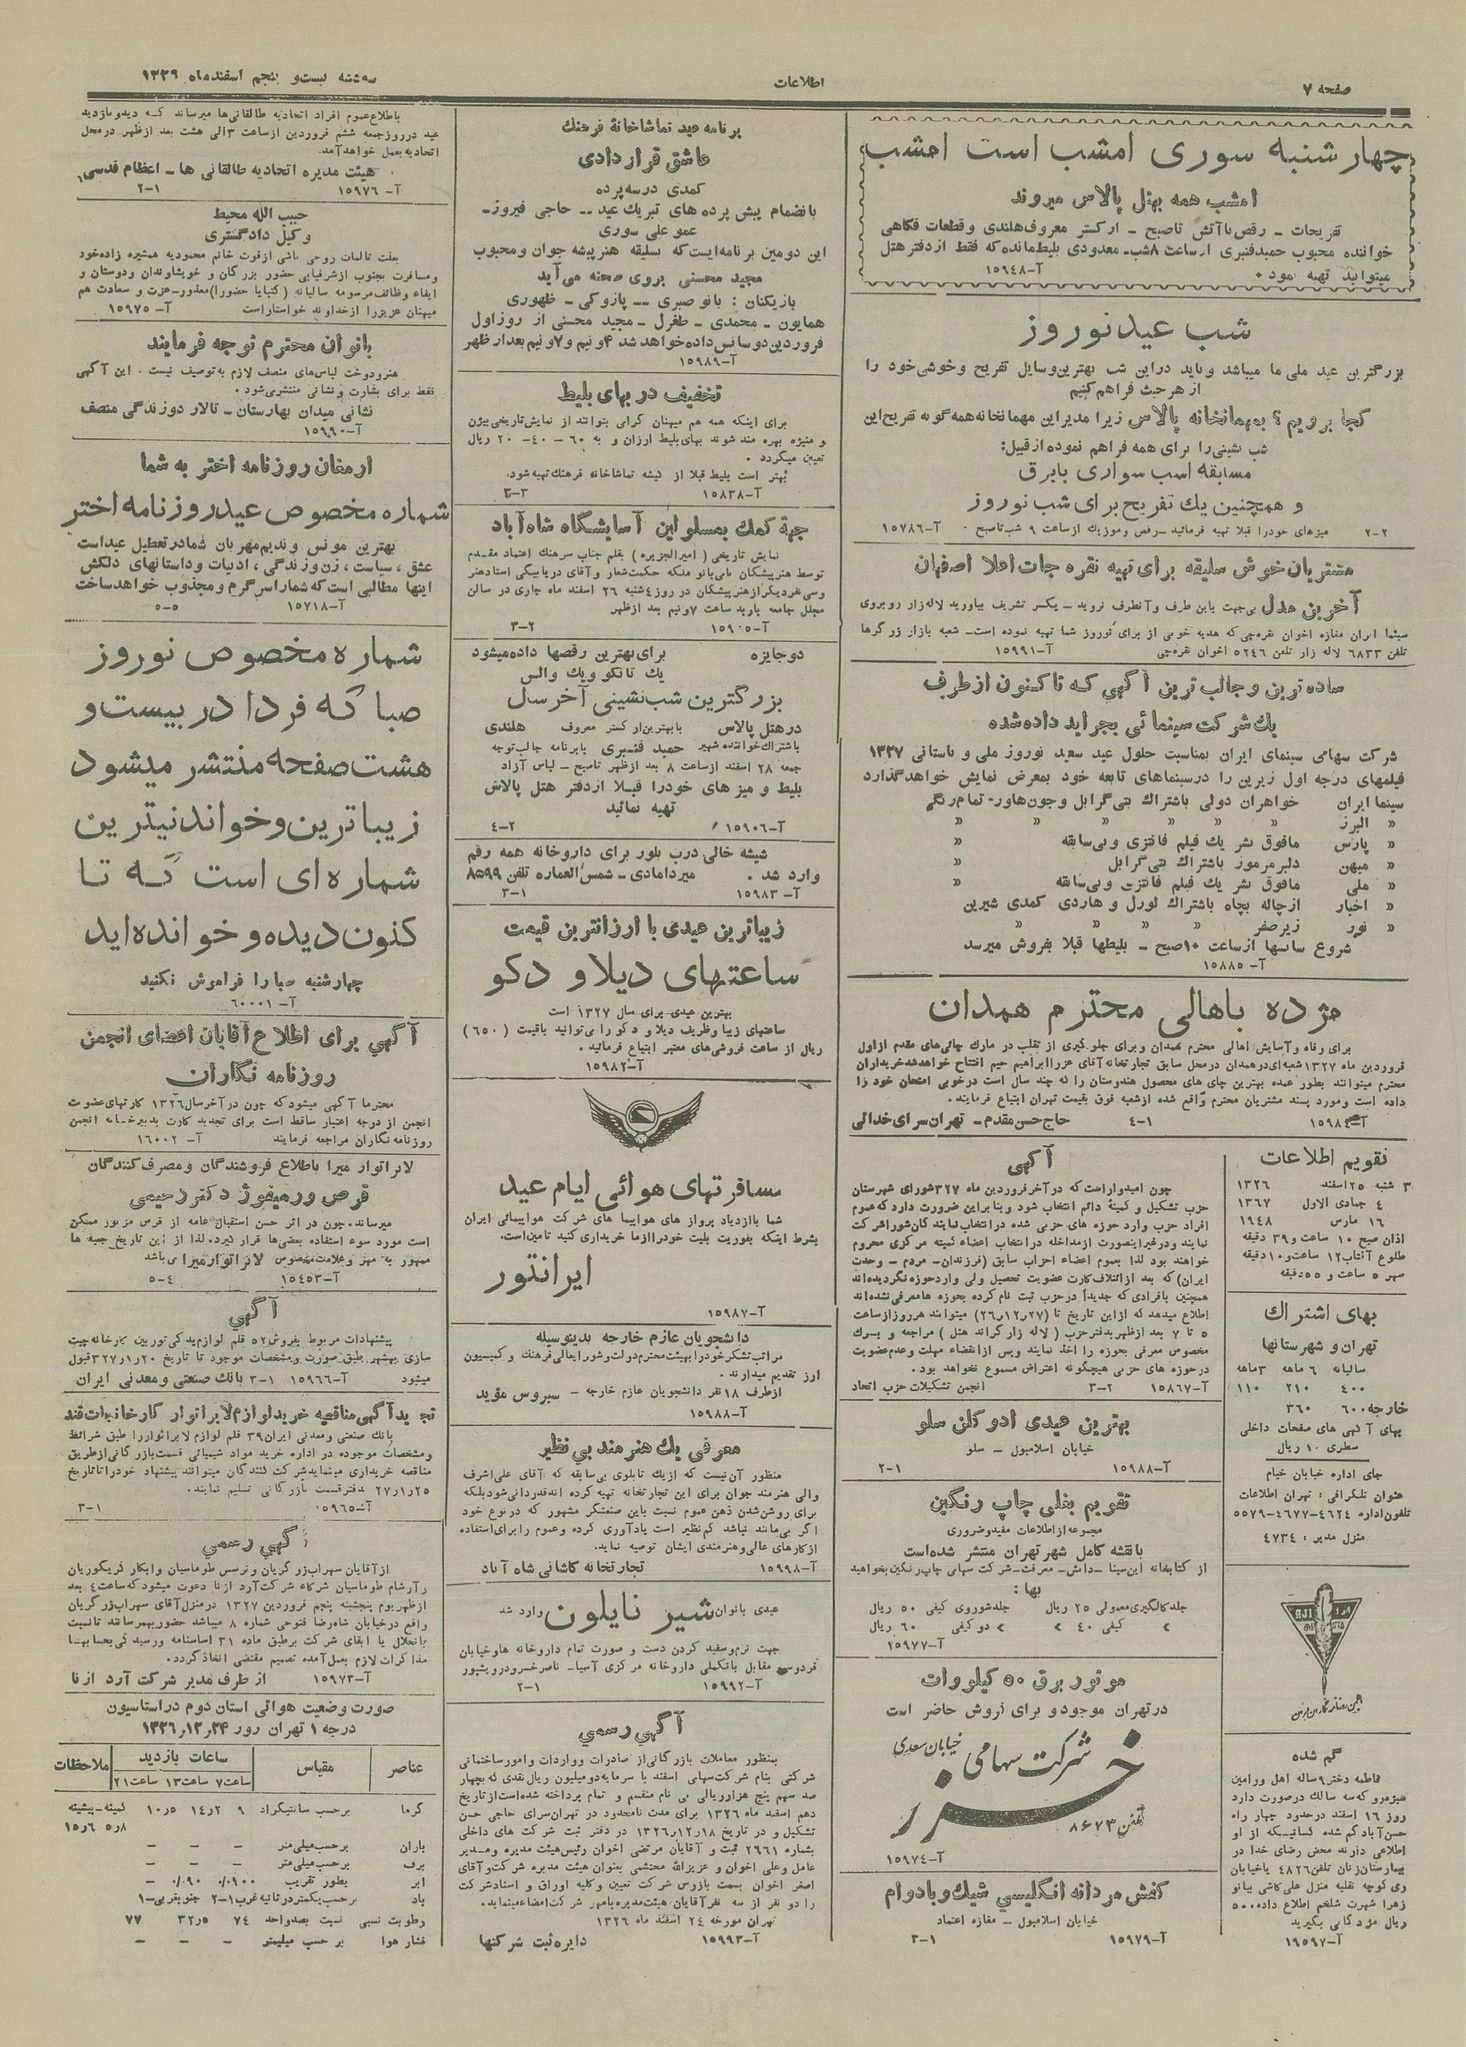 صفحه ۷
اطلاعات
سه‌شنبه بیست و پنجم اسفندماه ۱۳۲۶
چهارشنبه سوری امشب است امشب
امشب همه بهتل پالاس میروند
تفریحات - رقص با آتش تا صبح - ارکستر معروف هلندی و قطعات فکاهی
خواننده محبوب حمید قنبری از ساعت ۸ شب - معدودی بلیط مانده که فقط از دفتر هتل
میتوانید تهیه نمود.
آ-۱۵۹۴۸
شب عید نوروز
بزرگترین عید ملی ما میباشد و باید در این شب بهترین وسایل تفریح و خوشی خود را
از هر حیث فراهم کنیم
کجا برویم؟ بمهمانخانه پالاس زیرا مدیر این مهمانخانه همه گونه تفریح این
شب نشینی را برای همه فراهم نموده از قبیل:
مسابقه اسب سواری با یرق
و همچنین یک تفریح برای شب نوروز
۲-۲ میزهای خود را قبلا تهیه فرمائید - رقص و موزیک از ساعت ۹ شب تا صبح آ-۱۵۷۸۶
مشتریان خوش سلیقه برای تهیه نقره جات اعلا اصفهان
آخرین مدل بی‌جهت باین طرف و آنطرف نروید - یکسر تشریف بیاورید لاله‌زار روبروی
سینما ایران مغازه اخوان نقره‌چی که هدیه خوبی از برای نوروز شما تهیه نموده است - شعبه بازار زرگرها
تلفن ۶۸۳۳ لاله زار تلفن ۵۲۴۶ اخوان نقره‌چی آ-۱۵۹۹۱
ساده ترین و جالب ترین آگهی که تاکنون از طرف
یک شرکت سینمائی بجراید داده شده
شرکت سهامی سینمای ایران بمناسبت حلول عید سعید نوروز ملی و باستانی ۱۳۲۷
فیلمهای درجه اول زیرین را در سینماهای تابعه خود بمعرض نمایش خواهد گذارد
سینما ایران خواهران دولی باشتراک بتی گرابل و جون هاور - تمام رنگی
« البرز « « « « «
« پارس مافوق بشر یک فیلم فانتزی و بی‌سابقه «
« میهن دلبر مرموز باشتراک بتی گرابل «
« ملی مافوق بشر یک فیلم فانتزی و بی‌سابقه «
« اخبار از چاله بچاه باشتراک لورل و هاردی کمدی شیرین
« نور زیر صفر « « « «
شروع سانسها از ساعت ۱۰ صبح - بلیطها قبلا بفروش میرسد
آ-۱۵۸۸۵
مژده باهالی محترم همدان
برای رفاه و آسایش اهالی محترم همدان و برای جلوگیری از تقلب در مارک چائی‌های مقدم از اول
فروردین ماه ۱۳۲۷ شعبه‌ای در همدان در محل سابق تجارتخانه آقای عزرا ابراهیم حیم افتتاح خواهد شد خریداران
محترم میتوانند بطور عمده بهترین چای های محصول هندوستان را که چند سال است در خوبی امتحان خود را
داده است و مورد پسند مشتریان محترم واقع شده از شعبه فوق بقیمت تهران ابتیاع فرمایند.
آ-۱۵۹۸۴ ۴-۱ حاج حسن مقدم - تهران سرای خدائی
تقویم اطلاعات
۳ شنبه ۲۵ اسفند ۱۳۲۶
۴ جمادی الاول ۱۳۶۷
۱۶ مارس ۱۹۴۸
اذان صبح ۱۰ ساعت و ۳۹ دقیقه
طلوع آفتاب ۱۲ ساعت و ۱۰ دقیقه
ظهر ۵ ساعت و ۵۵ دقیقه
بهای اشتراک
تهران و شهرستانها
سالیانه ۶ ماهه ۳ ماهه
۴۰۰ ۲۱۰ ۱۱۰
خارجه ۶۰۰ ۳۶۰
بهای آگهی های صفحات داخلی
سطری ۱۰ ریال
جای اداره خیابان خیام
عنوان تلگرافی: تهران اطلاعات
تلفون اداره ۴۶۲۴-۴۶۷۷-۵۵۷۹
منزل مدیر: ۴۷۳۴
گم شده
فاطمه دختر ۹ ساله اهل ورامین
روز ۱۶ اسفند در حدود چهار راه
حسن‌آباد گم شده کسانیکه از او
اطلاعی دارند محض رضای خدا در
بیمارستان زنان تلفن ۴۸۲۶ یا خیابان
ری کوچه نقلیه منزل علی کاشی بیانو
زهرا شهرت شلخم اطلاع داده ۵۰۰
ریال مژدگانی بگیرید
آ-۱۹۵۹۷
آگهی
چون امیدوار است که در آخر فروردین ماه ۳۲۷ شورای شهرستان
حزب تشکیل و کمیتهٔ دائم انتخاب شود و بنابراین ضرورت دارد که عموم
افراد حزب وارد حوزه های حزبی شده در انتخاب نمایندگان شورا شرکت
نمایند و در غیر اینصورت از مداخله در انتخاب اعضاء کمیته مرکزی محروم
خواهند بود لذا بعموم اعضاء احزاب سابق (فرزندان - مردم - وحدت
ایران) که بعد از ائتلاف کارت عضویت تحصیل ولی وارد حوزه نگردیده‌اند
همچنین بافرادی که جدیداً در حزب ثبت نام کرده بحوزه ها معرفی نشده‌اند
اطلاع میدهد که از این تاریخ تا (۲۶ر۱۲ر۲۷) میتوانند هر روز از ساعت
۵ تا ۷ بعد از ظهر بدفتر حزب (لاله زار گراند هتل) مراجعه و برگ
مخصوص معرفی بحوزه را اخذ نمایند و پس از انقضاء مهلت و عدم عضویت
در حوزه های حزبی هیچگونه اعتراض مسموع نخواهد بود.
آ-۱۵۸۶۷ ۳-۲ انجمن تشکیلات حزب اتحاد
بهترین عیدی ادوکلن سلو
خیابان اسلامبول - سلو
آ-۱۵۹۸۸ ۲-۱
تقویم بغلی چاپ رنگین
مجموعه از اطلاعات مفید و ضروری
با نقشه کامل شهر تهران منتشر شده است
از کتابخانه ابن‌سینا - دانش - معرفت - شرکت سهامی چاپ رنگین بخواهید
بها:
جلد کالینگری معمولی ۲۵ ریال جلد شوروی کیفی ۵۰ ریال
« کیفی ۴۰ « « دو کیفی ۶۰ ریال
آ-۱۵۹۷۷
موتور برق ۵۰ کیلووات
در تهران موجود و برای فروش حاضر است
شرکت سهامی خزر
خیابان سعدی
تلفن ۸۶۷۳
آ-۱۵۹۷۴
کفش مردانه انگلیسی شیک و بادوام
خیابان اسلامبول - مغازه اعتماد
آ-۱۵۹۷۹ ۳-۱
برنامه عید تماشاخانهٔ فرهنگ
عاشق قراردادی
کمدی در سه پرده
بانضمام پیش پرده های تبریک عید -- حاجی فیروز -
عمو علی سوری
این دومین برنامه‌ایست که سلیقه هنرپیشه جوان و محبوب
مجید محسنی بروی صحنه می‌آید
بازیکنان: بانو صبری -- پازوکی - ظهوری
همایون - محمدی - طغرل - مجید محسنی از روز اول
فروردین دو سانس داده خواهد شد ۴ و نیم و ۷ و نیم بعد از ظهر
آ-۱۵۹۸۹
تخفیف در بهای بلیط
برای اینکه همه هم میهنان گرامی بتوانند از نمایش تاریخی بیژن
و منیژه بهره مند شوند بهای بلیط ارزان و به ۶۰-۴۰-۲۰ ریال
تعیین میگردد.
بهتر است بلیط قبلا از گیشه تماشاخانه فرهنگ تهیه شود.
آ-۱۵۸۳۸ ۳-۳
جهة کمک بمسلولین آسایشگاه شاه‌آباد
نمایش تاریخی (امیرالجزیره) بقلم جناب سرهنگ اعتماد مقدم
توسط هنرپیشگان نامی بانو ملکه حکمت شعار و آقای دریابیگی استاد هنر
و سی نفر دیگر از هنرپیشگان در روز ۴ شنبه ۲۶ اسفند ماه جاری در سالن
مجلل جامعه باربد ساعت ۷ و نیم بعد از ظهر
آ-۱۵۹۰۵ ۳-۲
دو جایزه برای بهترین رقصها داده میشود
یک تانگو و یک والس
بزرگترین شب‌نشینی آخر سال
در هتل پالاس با بهترین ارکستر معروف هلندی
باشتراک خواننده شهیر حمید قنبری با برنامه جالب توجه
جمعه ۲۸ اسفند از ساعت ۸ بعد از ظهر تا صبح - لباس آزاد
بلیط و میز های خود را قبلا از دفتر هتل پالاس
تهیه نمائید
آ-۱۵۹۰۶ ۴-۲
شیشه خالی درب بلور برای داروخانه همه رقم
وارد شد. میردامادی - شمس‌العماره تلفن ۸۵۹۹
آ-۱۵۹۸۳ ۳-۱
زیباترین عیدی با ارزانترین قیمت
ساعتهای دیلا و دکو
بهترین عیدی برای سال ۱۳۲۷ است
ساعتهای زیبا و ظریف دیلا و دکو را می‌توانید باقیمت (۶۵۰)
ریال از ساعت فروشی‌های معتبر ابتیاع فرمائید.
آ-۱۵۹۸۲
مسافرتهای هوائی ایام عید
شما با ازدیاد پرواز های هواپیما های شرکت هواپیمائی ایران
بشرط اینکه بفوریت بلیت خود را از ما خریداری کنید تامین است.
ایرانتور
آ-۱۵۹۸۷
دانشجویان عازم خارجه بدینوسیله
مراتب تشکر خود را بهیئت محترم دولت و شورایعالی فرهنگ و کمیسیون
ارز تقدیم میدارند.
از طرف ۱۸ نفر دانشجویان عازم خارجه - سیروس مؤید
آ-۱۵۹۸۸
معرفی یک هنرمند بی نظیر
منظور آن نیست که از یک تابلوی بی‌سابقه که آقای علی‌اشرف
والی هنرمند جوان برای این تجارتخانه تهیه کرده اند قدردانی شود بلکه
برای روشن شدن ذهن عموم نسبت باین صنعتگر مشهور که در نوع خود
اگر بی‌مانند نباشد کم نظیر است یادآوری کرده و عموم را برای استفاده
از کارهای عالی و هنرمندی ایشان توصیه نماید.
آ-۱۵۹۹۸ تجارتخانه کاشانی شاه آباد
عیدی بانوان شیر نایلون وارد شد
جهت نرم و سفید کردن دست و صورت تمام داروخانه ها و خیابان
فردوسی مقابل بانک ملی داروخانه مرکزی آسیا - ناصرخسرو درویشپور
آ-۱۵۹۹۲ ۲-۱
آگهی رسمی
بمنظور معاملات بازرگانی از صادرات و واردات و امور ساختمانی
شرکتی بنام شرکت سهامی اسفند با سرمایه دو میلیون ریال نقدی که بچهار
صد سهم پنج هزار ریالی بی نام منقسم و تمام پرداخته شده است از تاریخ
دهم اسفند ماه ۱۳۲۶ برای مدت نامحدود در تهران سرای حاجی حسن
تشکیل و در تاریخ ۱۸ر۱۲ر۱۳۲۶ در دفتر ثبت شرکت های داخلی
بشماره ۲۶۶۱ ثبت و آقایان مرتضی اخوان رئیس هیئت مدیره و مدیر
عامل و علی اخوان و عزیزالله محتشمی بعنوان هیئت مدیره شرکت و آقای
اصغر اخوان بسمت بازرس شرکت تعیین و کلیه اوراق و اسناد شرکت
را دو نفر از سه نفر آقایان هیئت مدیره با مهر شرکت امضاء مینماید.
تهران مورخه ۲۴ اسفند ماه ۱۳۲۶
آ-۱۵۹۹۳ دایره ثبت شرکتها
باطلاع عموم افراد اتحادیه طالقانی‌ها میرساند که دید و بازدید
عید در روز جمعه ششم فروردین از ساعت ۳ الی هشت بعد از ظهر در محل
اتحادیه بعمل خواهد آمد.
هیئت مدیره اتحادیه طالقانی ها - اعظام قدسی
آ-۱۵۹۷۶ ۲-۱
حبیب الله محیط
وکیل دادگستری
بعلت تالمات روحی ناشی از فوت خانم محمودیه همشیره زاده خود
و مسافرت بجنوب از شرفیابی حضور بزرگان و خویشاوندان و دوستان و
ایفاء وظائف مرسومه سالیانه (کتبا یا حضورا) معذور - عزت و سعادت هم
میهنان عزیز را از خداوند خواستار است آ-۱۵۹۷۵
بانوان محترم توجه فرمایند
هنر و دوخت لباس‌های منصف لازم به توصیف نیست. این آگهی
فقط برای بشارت و نشانی منتشر می‌شود.
نشانی میدان بهارستان - تالار دوزندگی منصف
آ-۱۵۹۹۰
ارمغان روزنامه اختر به شما
شماره مخصوص عید روزنامه اختر
بهترین مونس و ندیم مهربان شما در تعطیل عید است
عشق، سیاست، زن و زندگی، ادبیات و داستانهای دلکش
اینها مطالبی است که شما را سرگرم و مجذوب خواهد ساخت
آ-۱۵۷۱۸ ۵-۵
شماره مخصوص نوروز
صبا که فردا در بیست و
هشت صفحه منتشر میشود
زیباترین و خواندنیترین
شماره‌ای است که تا
کنون دیده و خوانده‌اید
چهارشنبه صبا را فراموش نکنید
آ-۶۰۰۰۱
آگهی برای اطلاع آقایان اعضای انجمن
روزنامه نگاران
محترما آگهی میشود که چون در آخر سال ۱۳۲۶ کارتهای عضویت
انجمن از درجه اعتبار ساقط است برای تجدید کارت بدبیرخانه انجمن
روزنامه نگاران مراجعه فرمایند آ-۱۶۰۰۲
لابراتوار میرا باطلاع فروشندگان و مصرف کنندگان
قرص ورمیفوژ دکتر رحیمی
میرساند. چون در اثر حسن استقبال عامه از قرص مزبور ممکن
است مورد سوء استفاده بعضی‌ها قرار گیرد. لذا از این تاریخ جعبه ها
ممهور به مهر و علامت مخصوص لابراتوار میرا می‌باشد
آ-۱۵۴۵۳ ۵-۴
آگهی
پیشنهادات مربوط بفروش ۵۲ قلم لوازم یدکی توربین کارخانه چیت
سازی بهشهر طبق صورت و مشخصات موجود تا تاریخ ۲۰ر۱ر۳۲۷ قبول
میشود آ-۱۵۹۶۶ ۳-۱ بانک صنعتی و معدنی ایران
تجدید آگهی مناقصه خرید لوازم لابراتوار کارخانجات قند
بانک صنعتی و معدنی ایران ۳۹ قلم لوازم لابراتوار را طبق شرائط
و مشخصات موجوده در اداره خرید مواد شیمیائی قسمت بازرگانی از طریق
مناقصه خریداری مینماید شرکت کنندگان میتوانند پیشنهاد خود را تا تاریخ
۲۵ر۱ر۲۷ بدفتر قسمت بازرگانی تسلیم نمایند.
آ-۱۵۹۶۵ ۳-۱
آگهی رسمی
از آقایان سهراب زرگریان و نرسس طوماسیان و ابکار گریگوریان
و آرشام طوماسیان شرکاء شرکت آرد ازنا دعوت میشود که ساعت ۴ بعد
از ظهر یوم پنجشنبه پنجم فروردین ۱۳۲۷ در منزل آقای سهراب زرگریان
واقع در خیابان شاهرضا فتوحی شماره ۸ میباشد حضور بهمرسانند تا نسبت
بانحلال یا ابقای شرکت بر طبق ماده ۳۱ اساسنامه و رسیدگی بحسابها
مذاکرات لازم بعمل آمده تصمیم مقتضی اتخاذ گردد.
آ-۱۵۹۷۳ از طرف مدیر شرکت آرد ازنا
صورت وضعیت هوائی استان دوم در استاسیون
درجه ۱ تهران روز ۲۴ر۱۲ر۱۳۲۶
عناصر مقیاس ساعات بازدید ملاحظات
ساعت ۷ ساعت ۱۳ ساعت ۲۱
گرما برحسب سانتیگراد ۹ ۱۴ر۲ ۱۰ر۵ کمینه-بیشینه
۵ر۸ ۱۵ر۶
باران برحسب میلی متر - - -
برف برحسب میلی‌متر - - -
ابر بطور تقریب ۰/۰۹۰۰ ۰/۰۹۰ -
باد برحسب یکمتر در ثانیه غرب ۱-۲ جنوبغربی-۱
رطوبت نسبی نسبت بصد واحد ۷۴ ۳۲ر۵ ۷۷
فشار هوا برحسب میلیمتر - - -